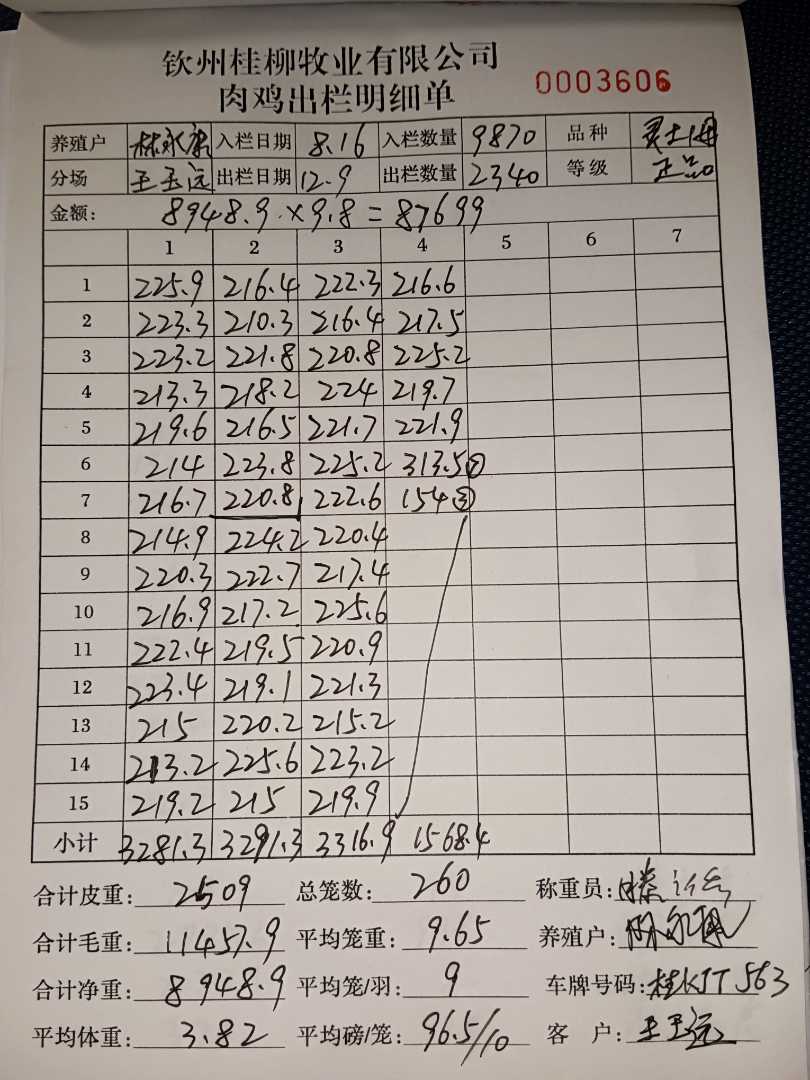 钦州桂柳牧业有限公司
肉鸡出栏明细单 0003606
养殖户 林永 入栏日期 8.16 入栏数量 9870 品种
分场 王玉远 出栏日期 12.9 出栏数量 2340 等级 正品
金额: 8948.9×9.8=87699
1 2 3 4 5 6 7
1 225.9 216.4 222.3 216.6
2 223.3 210.3 216.4 217.5
3 223.2 221.8 220.8 225.2
4 213.3 218.2 224 219.7
5 219.6 216.5 221.7 221.9
6 214 223.8 225.2 313.5
7 216.7 220.8 222.6 154
8 214.9 224.2 220.4
9 220.3 222.7 217.4
10 216.9 217.2 225.6
11 222.4 219.5 220.9
12 223.4 219.1 221.3
13 215 220.2 215.2
14 213.2 225.6 223.2
15 219.2 215 219.9
小计 3281.3 3291.3 3316.9 1568.4
合计皮重: 2509 总笼数: 260 称重员:
合计毛重: 11457.9 平均笼重: 9.65 养殖户:
合计净重: 8948.9 平均笼/羽: 9 车牌号码: 桂KJT563
平均体重: 3.82 平均磅/笼: 96.5/10 客户: 王玉远